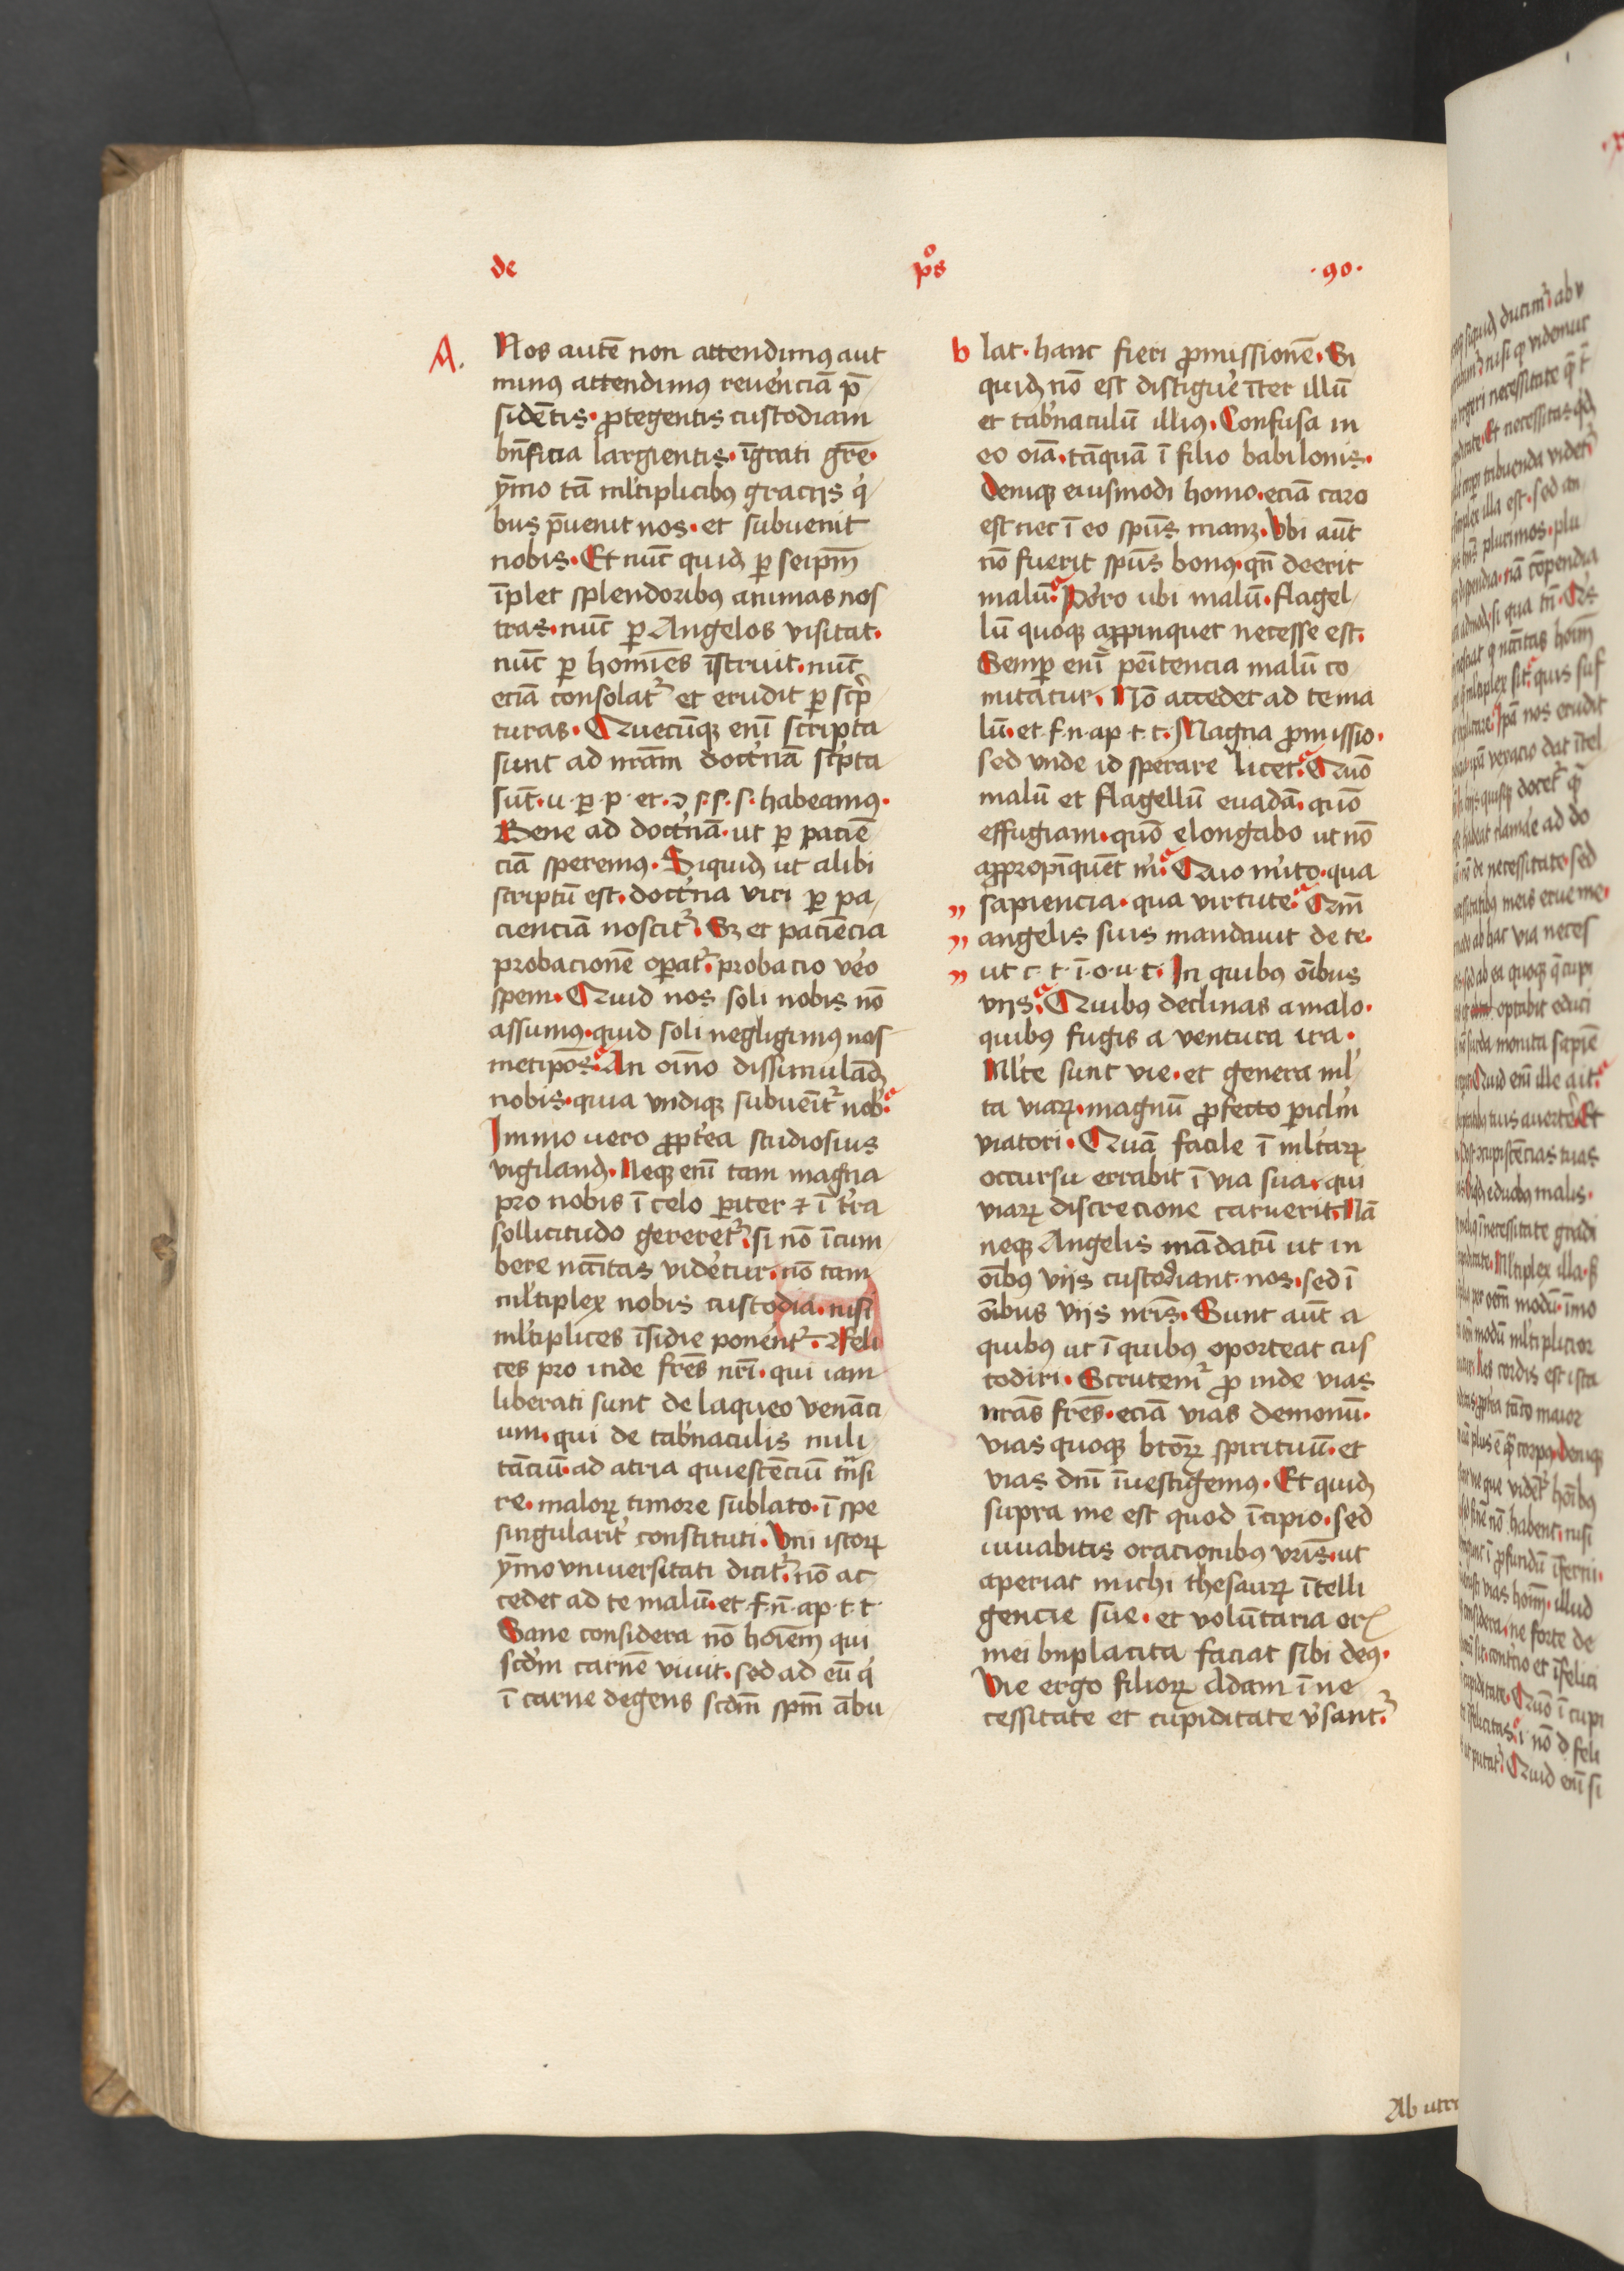 de pₒs · 90 ·
A. Nos autē non attendimꝰ aut
minꝰ attendimꝰ reuē'ciā p̄
sidētis · ꝓtegentis custodiam
bn̄ficia largientis · īgrati gr̄e ·
ȳmo tā ml'tiplicibꝰ gracijs q'
bus p̄uenit nos · et subuenit
nobis · Et nūc quidꝫ ꝑ seip̄m
īplet splendoribꝰ animas nos
tras · nūc ꝑ Angelos visitat ·
nūc ꝑ homīes īstruit · nūc
eciā consolat᷑ et erudit ꝑ sc'p
turas · Quecūqꝫ enī scripta
sunt ad nr̄am doct'nā sc'pta
sūt · u · ꝑ · p · et · ꝯ s · s · s · habeamꝰ ·
Bene ad doct'nā · ut ꝑ paciē
ciā speremꝰ · Siquidꝫ ut alibi
scriptū est · doct'na viri ꝑ pa
cienciā noscit᷑ · Sꝫ et paciēcia
probacionē oꝑat᷑ · probacio ve'o
spem · Quid nos soli nobis nō
assumꝰ · quid soli negligimꝰ nos
metip̄os · An oīno dissimulādꝫ
nobis · quia vndiqꝫ subueīt᷑ nob'
Immo uero ꝓpt'ea studiosius
vigilandꝫ · Neqꝫ enī tam magna
pro nobis ī celo ꝑiter ⁊ ī t'ra
sollicitudo gereret᷑ · si nō īcum
bere ncc̄itas vide'tur · nō tam
ml'tiplex nobis custodia · nisi
ml'tiplices īsidie ponent᷑ · Feli
ces pro inde fr̄es nr̄i · qui iam
liberati sunt de laqueo venāci
um · qui de tab'naculis mili
tāciū · ad atria quiescēciū tn̄si
re · maloꝝ timore sublato · ī spe
singularit' constituti · Vni istoꝝ
ȳmo vniuersitati dicit᷑ · nō ac
cedet ad te malū · et · f · n̄ · ap · t · t ·
Sane considera nō hoīem qui
scd'm carnē viuit · sed ad eū q'
ī carne degens scd̄m sp̄m ābu
b lat · hanc fieri ꝓmissionē · Si
quidꝫ nō est distigue' īter illū
et tab'naculū illiꝰ · Confusa in
eo oīa · tāquā ī filio babilonis ·
Deniqꝫ eiusmodi homo · eciā caro
est nec ī eo sp̄us manꝫ · Vbi aūt
nō fuerit sp̄us bonꝰ · qn̄ deerit
malū · Porro ubi malū · flagel
lū quoqꝫ aꝓpinquet necesse est ·
Semꝑ enī peītencia malū co
mitatur · Nō accedet ad te ma
lū · et · f · n · ap · t · t · Magna ꝓmissio ·
sed vnde id sperare licet · Quō
malū et flagellū euadā · quō
effugiam · quō elongabo ut nō
aꝓpropīquēt m' · Quo m'ito · qua
" sapiencia · qua virtute · Qm̄
" angelis suis mandauit de te ·
" ut c · t · ī · o · u · t · In quibꝰ oībus
vijs · Quibus declinas a malo ·
quibꝰ fugis a ventura ira ·
Ml'te sunt vie · et genera ml'
ta viaꝝ · magnū ꝓfecto ꝑicl'm
viatori · Quā facile ī ml'taꝝ
occursu errabit ī via sua · qui
viaꝝ discrecione caruerit · Nā
neqꝫ Angelis mādatū ut in
oībꝰ vijs custodiant · nos · sed ī
oībus vijs nr̄is · Sunt aūt a
quibꝰ ut ī quibꝰ oporteat cus
todiri · Scrutem᷑ ꝓ inde vias
nr̄as fr̄es · eciā vias demonū ·
vias quoqꝫ bt̄oꝝ spirituū · et
vias dn̄i īuestigemꝰ · Et quidꝫ
supra me est quod īcipio · sed
iuuabitis oracionibus vr̄is · ut
aperiat michi thesauꝝ ītelli
gencie sue · et volūtaria or
mei bn̄placita faciat sibi deꝰ ·
Vie ergo filioꝝ Adam ī ne
cessitate et cupiditate v'sant᷑ ·